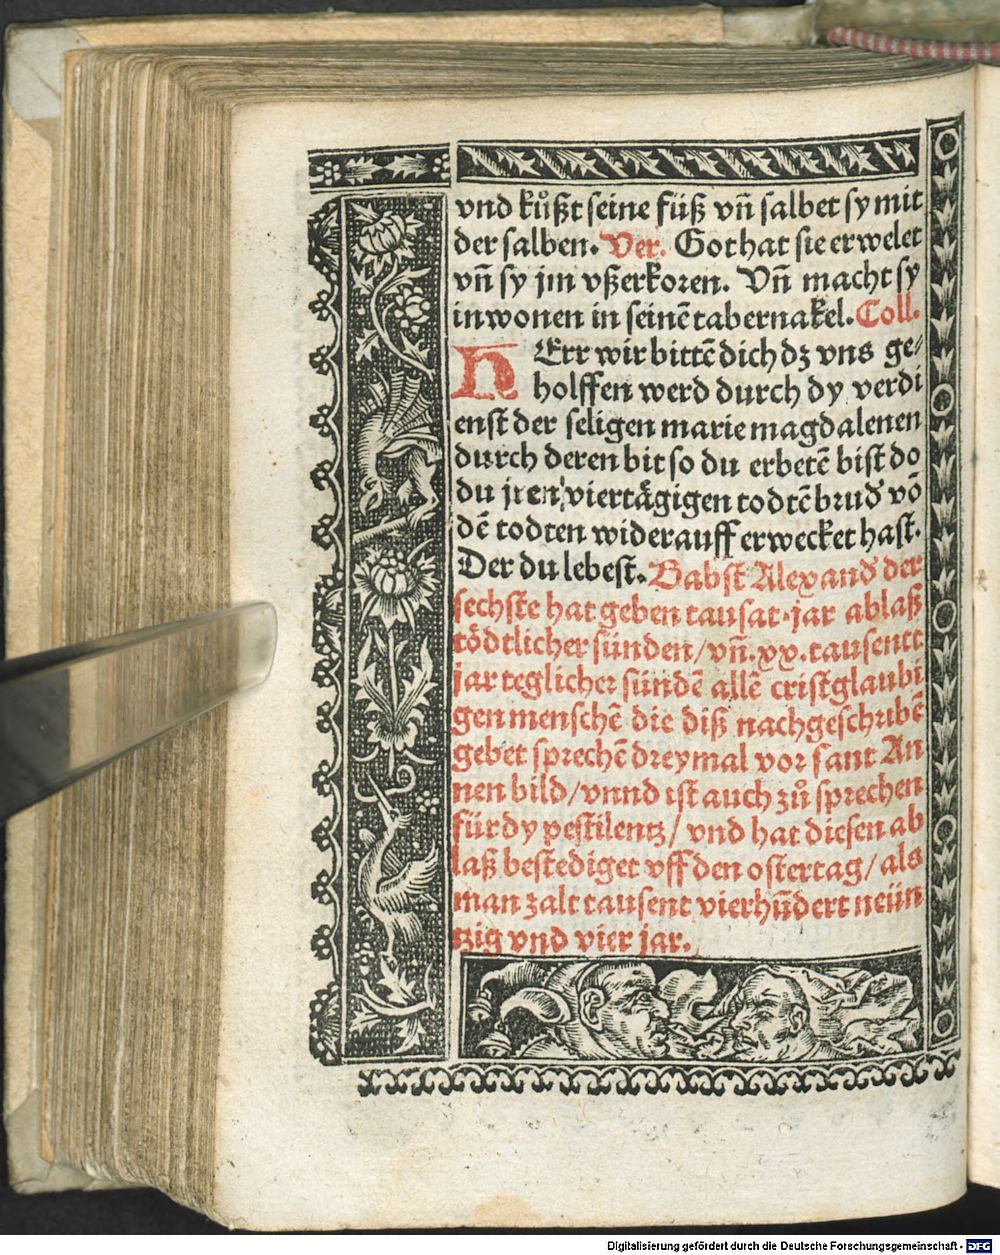 vnd kuͦßt seine füß vñ salbet sy mit
der salben. Ver. Got hat sie erwelet
vñ sy jm vßerkoren. Vñ macht sy
inwonen in seinē tabernakel. Coll.
HErr wir bittē dich dz vns ge⸗
holffen werd durch dy verdi
enst der seligen marie magdalenen
durch deren bit so du erbetē bist do
du jren viertägigen todtē brud vō
dē todten widerauff erwecket hast.
Der du lebest. Babst Alexand der
sechste hat geben tausat. jar ablaß
tödtlicher sünden/ vñ. xx. tausentt
jar teglicher sündē allē cristglaubi
gen menschē die diß nachgeschribē
gebet sprechē dreymal vor sant An
nen bild/ vnnd ist auch zuͦ sprechen
für dy pestilentz/ vnd hat diesen ab
laß bestediget vff den ostertag/ als
man zalt tausent vierhūdert neün
tzig vnd vier jar.
Digitalisierung gefördert durch die Deutsche Forschungsgemeinschaft - DFG